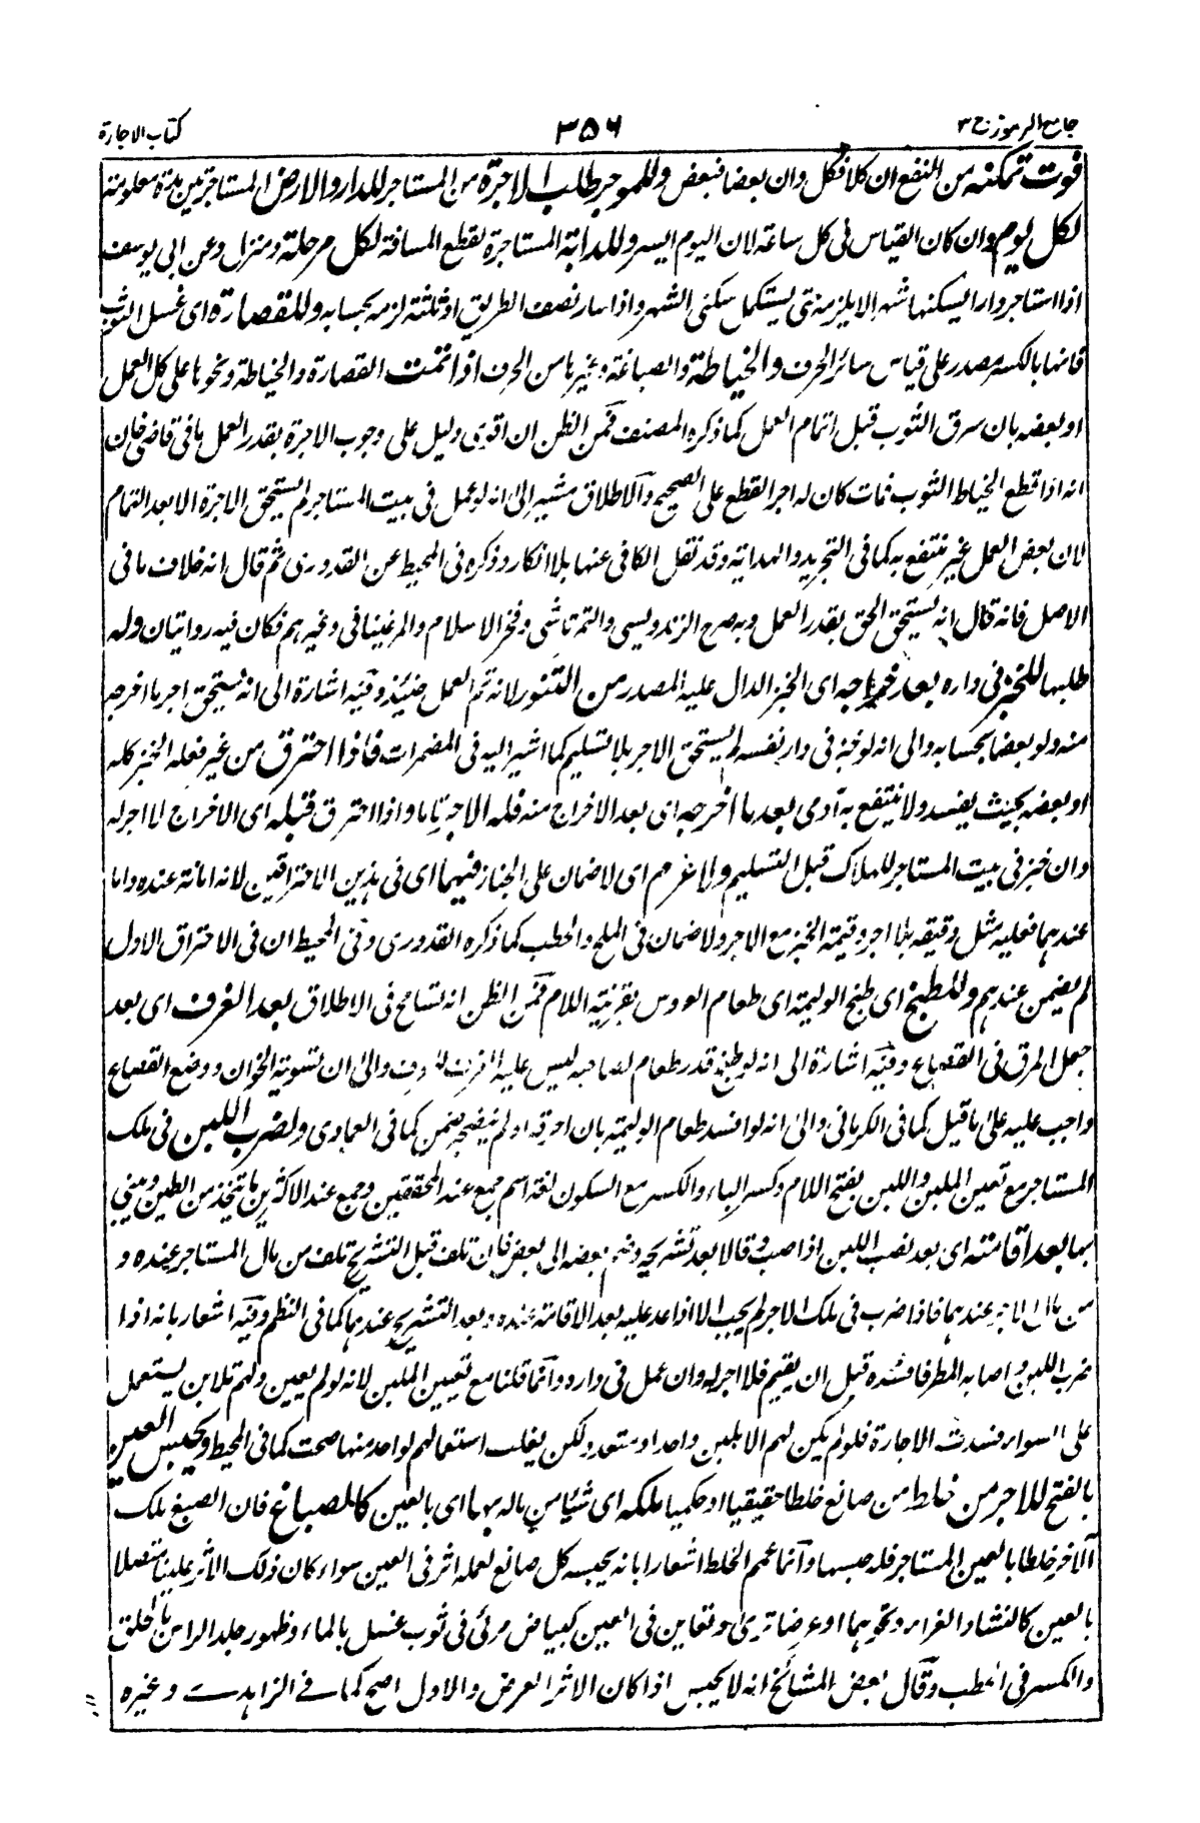 جامع الرموز ج ٣
٣٥٦
كتاب الاجارة
فوت تمكنه من النفع ان كلا فكل وان بعضا فبعض وللموجر طلب الاجرة من المستاجر للدار والارض المستاجرتين مدة معلومة
لكل يوم وان كان القياس فى كل ساعة لان اليوم ايسر وللدابة المستاجرة لقطع المسافة لكل مرحلة ومنزل وعن ابى يوسف
اذا استاجر دارا ليسكنها شهرا لا يلزمه حتى يستكمل سكنى الشهر واذا سار نصف الطريق او ثلثه لزمه بحسابه وللقصارة اى غسل الثوب
فانها بالكسر مصدر على قياس سائر الحرف والخياطة والصباغة وغيرها من الحرف اذا تمت القصارة والخياطة ونحوها على كل العمل
او بعضه بان سرق الثوب قبل اتمام العمل كما ذكره المصنف فمن الظن ان اقوى دليل على وجوب الاجرة بقدر العمل ما فى قاضى خان
انه اذا قطع الخياط الثوب فمات كان له اجر القطع على الصحيح والاطلاق مشير الى انه لو عمل فى بيت المستاجر لم يستحق الاجرة الا بعد التمام
لان بعض العمل غير منتفع به كما فى التجريد والهداية وقد نقل الكافى عنها بلا انكار وذكره فى المحيط عن القدورى ثم قال انه خلاف ما فى
الاصل فانه قال انه يستحق الحق بقدر العمل وبه صرح الزندويسى والتمرتاشى وفخر الاسلام والمرغينانى وغيرهم فكان فيه روايتان وله
طلبها للخبز فى داره بعد اخراجه اى الخبز الدال عليه المصدر من التنور لانه تم العمل حينئذ وفيه اشارة الى انه يستحق اجر ما اخرجه
منه ولو بعضا بحسابه والى انه لو خبز فى دار نفسه لم يستحق الاجر بلا تسليم كما اشير اليه فى المضمرات فاذا احترق من غير فعله الخبز كله
او بعضه بحيث يفسد ولا ينتفع به آدمى بعد ما اخرجه اى بعد الاخراج منه فله الاجر تاما واذا احترق قبله اى الاخراج لا اجر له
وان خبز فى بيت المستاجر للهلاك قبل التسليم ولا غرم اى لا ضمان على الخباز فيهما اى فى هذين الاحتراقين لانه امانة عنده واما
عندهما فعليه مثل دقيقه بلا اجر وقيمة الخبز مع الاجر ولا ضمان فى الملح والحطب كما ذكره القدورى وفى المحيط ان فى الاحتراق الاول
لم يضمن عندهم وللطبخ اى طبخ الوليمة اى طعام العروس بقرينة اللام فمن الظن انه تسامح فى الاطلاق بعد الغرف اى بعد
جعل المرق فى القصاع وفيه اشارة الى انه لو طبخ قدر طعام لصاحبه ليس عليه والى ان تسوية الخوان ووضع القصاع
واجب عليه على ما قيل كما فى الكرمانى والى انه لو افسد طعام الوليمة بان احرقه او لم ينضجه يضمن كما فى العمادى ولضرب اللبن فى ملك
المستاجر مع تعيين الملبن واللبن بفتح اللام وكسر الباء والكسر مع السكون لغة اسم جمع عند المحققين وجمع عند الاكثرين ما يتخذ من الطين ويبنى
بها بعد اقامته اى بعد نصب اللبن اذا صب وقالا بعد تشريجه وضم بعضه الى بعض فان تلف قبل التشريج تلف من مال المستاجر عنده و
من مال عندهما فاذا ضرب فى ملك الاجر لم يجب الا اذا عد عليه بعد الاقامة عنده وبعد التشريج عندهما كما فى النظم وفيه اشعار بانه اذا
ضرب اللبن و اصابه المطر فافسده قبل ان يقيم فلا اجر له وان عمل فى داره وانما قلنا مع تعيين الملبن لانه لو لم يعين ولهم ملابن يستعمل
على السواء فسدت الاجارة فلو لم يكن لهم الا ملبن واحد او متعدد ولكن يغلب استعمالهم لواحد منها صحت كما فى المحيط ويحبس العين
بالفتح للاجر من خلط من صانع خلطا حقيقيا او حكميا ملكه اى شيئا من ماله بها اى بالعين كالصباغ فان الصبغ ملك
الآخر خلط بالعين المستاجر فله حبسها وانما عمم الخلط اشعارا بانه يحبسه كل صانع لعمله اثر فى العين سواء كان ذلك الاثر عينا متصلا
بالعين كالنشا والغراء ونحوهما او عرضا ترى وتعاين فى العين كبياض مرئى فى ثوب غسل بالماء وظهور جلد الراس بالحلق
والكسر فى الحطب وقال بعض المشائخ انه لا يحبس اذا كان الاثر العرض والاول اصح كما فى الزاهدى وغيره